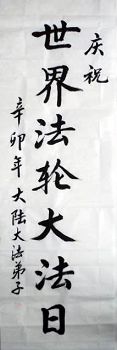 庆祝
世界法轮大法日
辛卯年 大陆大法弟子